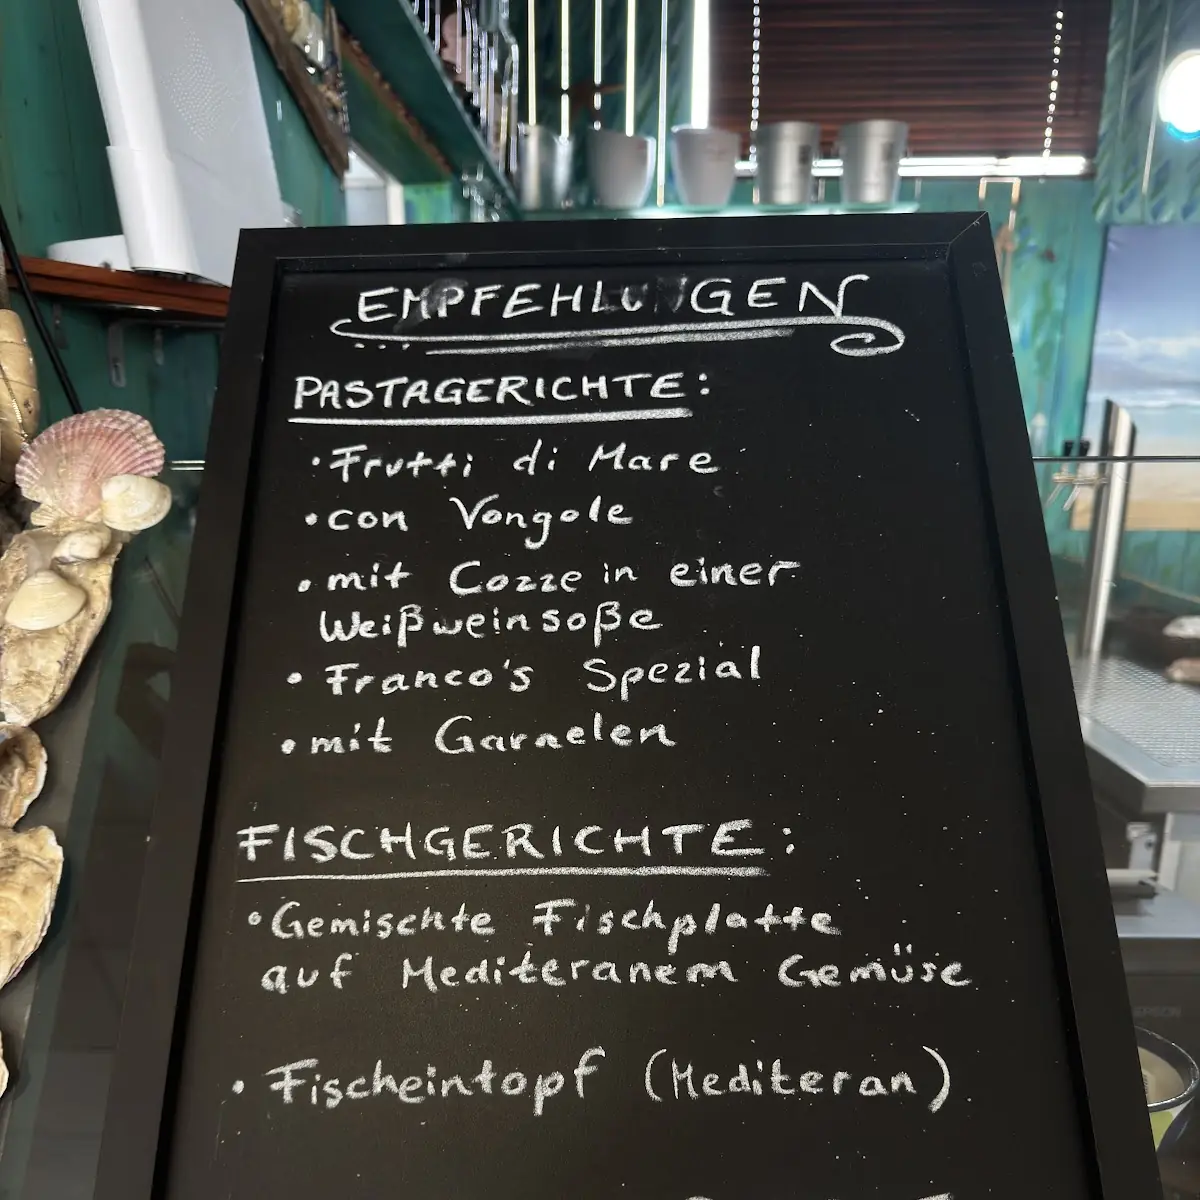 EMPFEHLUNGEN
PASTAGERICHTE:
· Frutti di Mare
· con Vongole
· mit Cozze in einer
Weißweinsoße
· Franco's Spezial
· mit Garnelen
FISCHGERICHTE:
· Gemischte Fischplatte
auf Mediteranem Gemüse
· Fischeintopf (Mediteran)